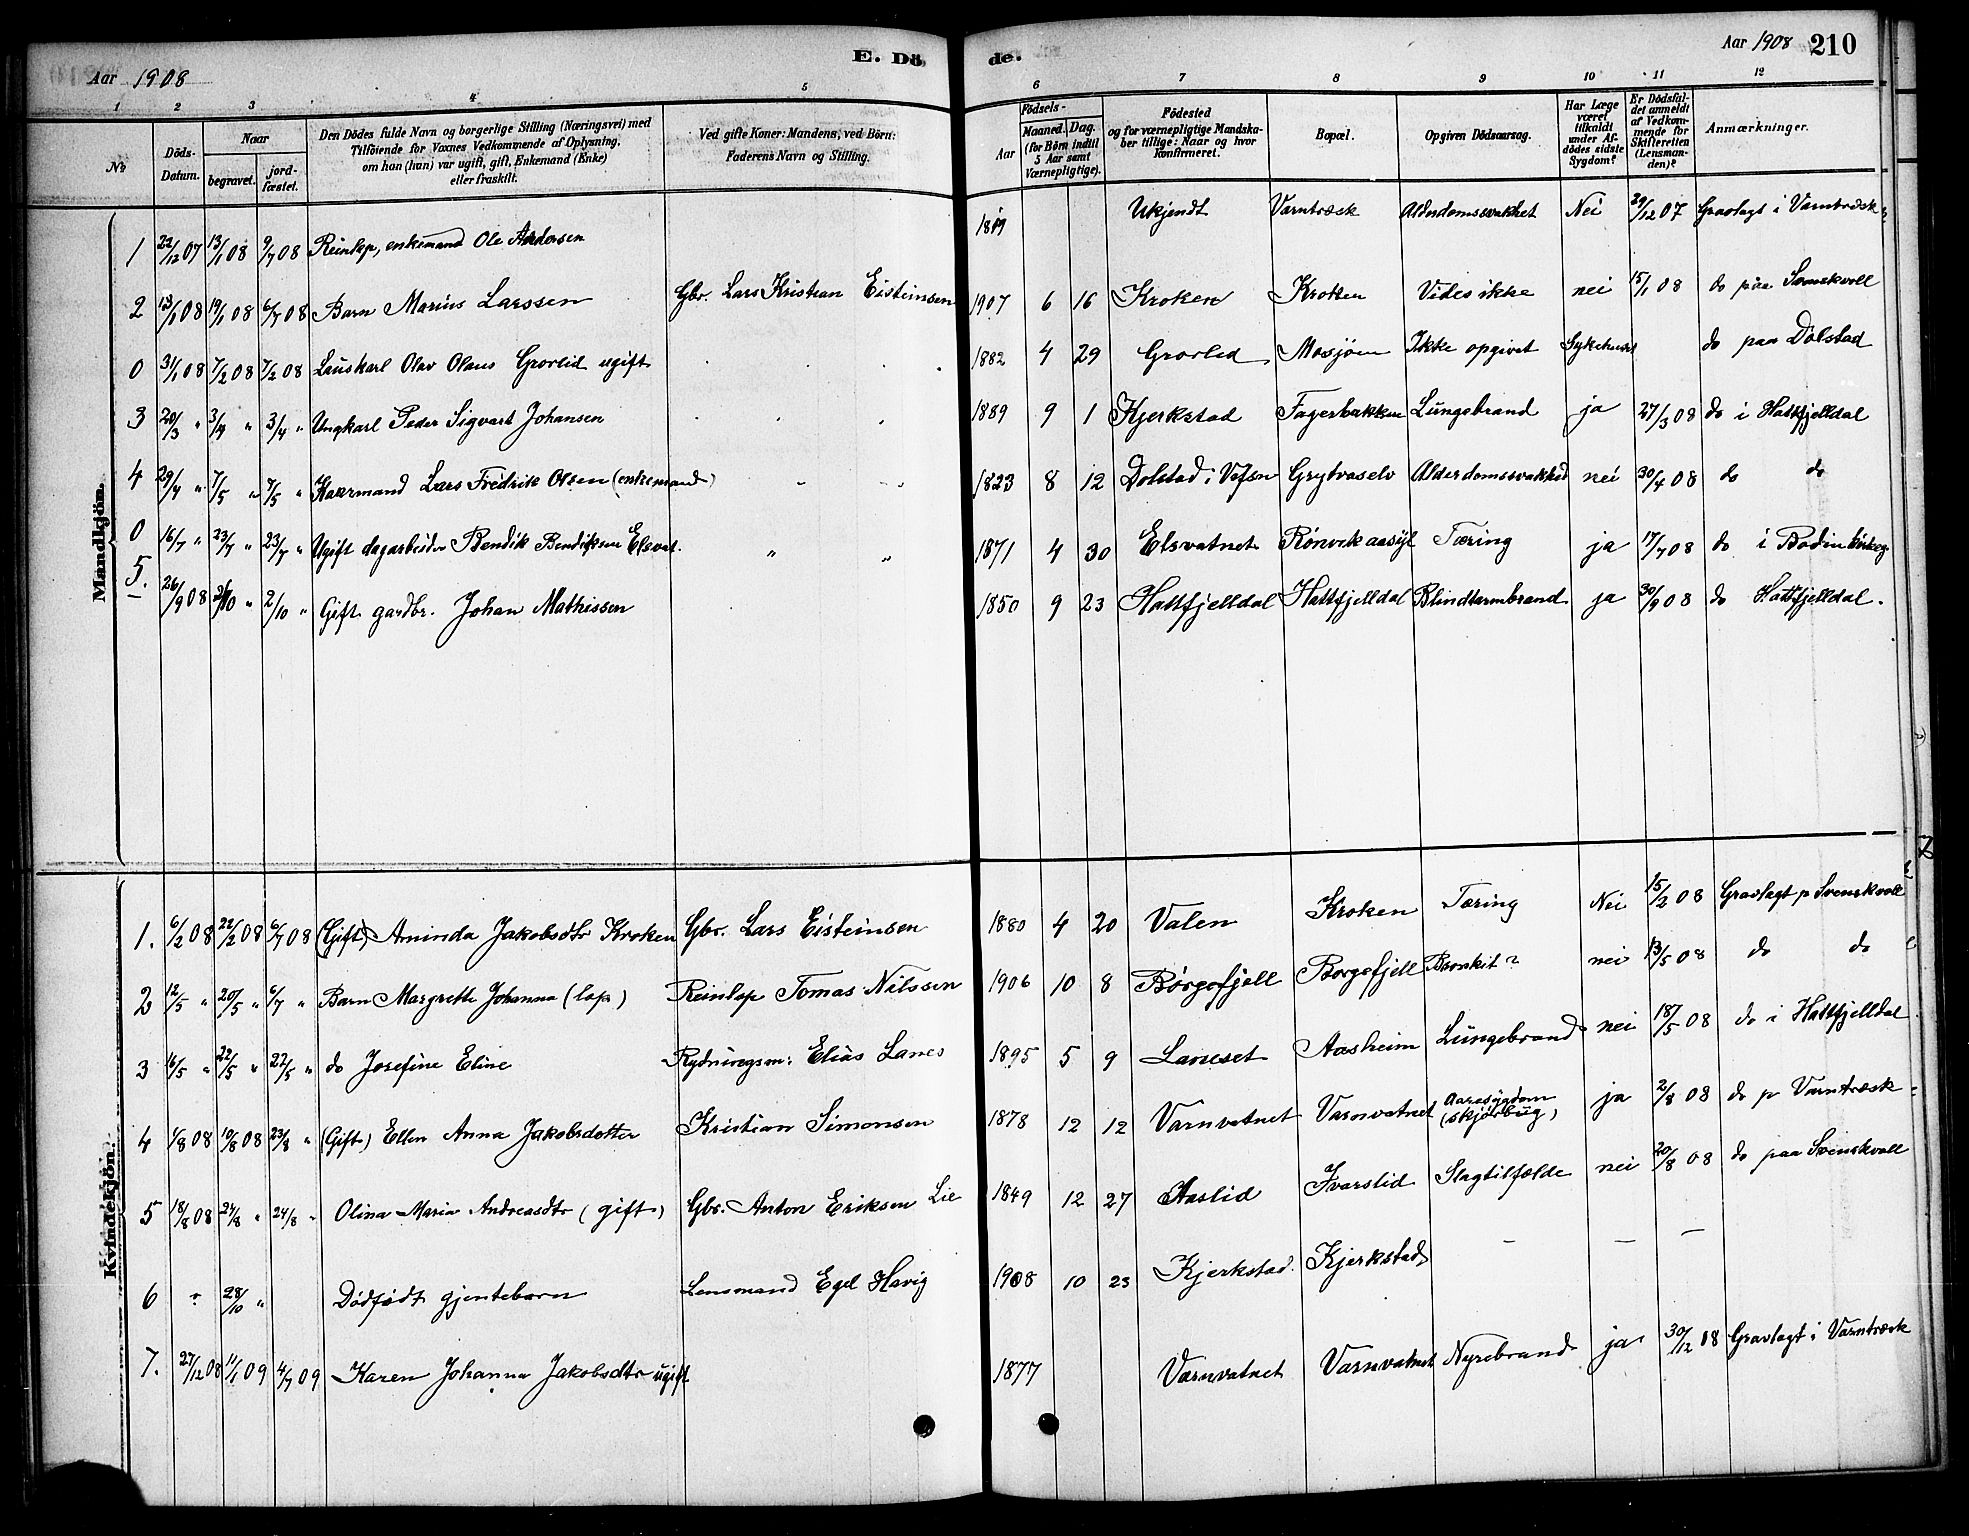 Aar 1908
E. Dö
de.
Aar 1908 210
1 2 3 4 5 6 7 8 9 10 11 12
No Döds-Datum. Naar begravet. jord-fæstet. Den Dödes fulde Navn og borgerlige Stilling (Næringsvei) med Tilföiende for Voxnes Vedkommende af Oplysning, om han (hun) var ugift, gift, Enkemand (Enke) eller fraskilt. Ved gifte Koner: Mandens, ved Börn: Faderens Navn og Stilling. Födsels- Aar Maaned. Dag. (for Börn indtil 5 Aar samt Værnepligtige). Födested og for værnepligtige Mandskaber tillige: Naar og hvor konfirmeret. Bopæl. Opgiven Dödsaarsag. Har Læge været tilkaldt under Afdödes sidste Sygdom? Er Dödsfaldet anmeldt af Vedkommende for Skifteretten (Lensmanden)? Anmærkninger.
Mandkjön.
1 22/12 07 13/1 08 9/7 08 Reinlap, enkemand Ole Andersen 1819 Ukjendt Varntræsk Alderdomssvakhet Nei 29/12 07 Gravlagt i Varntræsk
2 13/1 08 19/1 08 6/7 08 Barn Marius Larssen Gbr. Lars Kristian Eisteinsen 1907 6 16 Kroken Kroken Vides ikke nei 15/1 08 do paa Svenskvoll
0 31/1 08 7/2 08 7/2 08 Lauskarl Olav Olaus Grovlid ugift 1882 4 29 Grovlid Mosjøen Ikke opgivet Sykehuset do paa Dolstad
3 20/3 " 3/4 " 3/4 " Ungkarl Peder Sigvart Johansen 1889 9 1 Kjerkstad Fagerbakken Lungebrand ja 27/3 08 do i Hattfjelldal
4 29/4 " 7/5 " 7/5 " Kaarmand Lars Fredrik Olsen (enkemand) 1823 8 12 Dolstad i Vefsn Grytvaselv Alderdomssvakhed nei 30/4 08 do do
0 16/7 " 23/7 " 23/7 " Ugift dagarbeider Bendik Bendiksen Elsvat. " " 1871 4 30 Elsvatnet Rønvik aasyl Tæring ja 17/7 08 do i Bodin kirkeg.
5. 26/9 08 2/10 " 2/10 " Gift gardbr. Johan Mathissen 1850 9 23 Hattfjelldal Hattfjelldal Blindtarmbrand ja 30/9 08 do Hattfjelldal.
Kvindekjön.
1. 6/2 08 22/2 08 6/7 08 (Gift) Aminda Jakobsdtr Kroken Gbr. Lars Eisteinsen 1880 4 20 Valen Kroken Tæring Nei 15/2 08 Gravlagt p Svenskvoll
2 12/5 " 20/5 " 6/7 " Barn Margrethe Johanna (lap) Reinlap Tomas Nilssen 1906 10 8 Børgefjell Borgefjell Bronkit? nei 13/5 08 do do
3 16/5 " 22/5 " 22/5 " do Josefine Eline Rydningsm: Elias Lanes 1895 5 9 Laneset Aasheim Lungebrand nei 18/5 08 do i Hattfjelldal
4 1/8 08 19/8 08 23/8 " (Gift) Ellen Anna Jakobsdotter Kristian Simonsen 1878 12 12 Varnvatnet Varnvatnet Aaresygdom (skjørbug) ja 2/8 08 do p Varntræsk
5 18/8 08 24/8 " 24/8 " Olina Maria Andreasdtr (gift) Gbr. Anton Eriksen Lie 1849 12 27 Aaslid Ivarslid Slagtilfælde nei 20/8 08 do paa Svenskvoll
6 " 28/10 " Dödfödt gjentebarn Lensmand Egil Havig 1908 10 23 Kjerkstad Kjerkstad — — —
7. 27/12 08 11/1 09 4/7 09 Karen Johanna Jakobsdtr ugift 1877 Varnvatnet Varnvatnet Nyrebrand ja 30/12 08 Gravlagt i Varntræsk